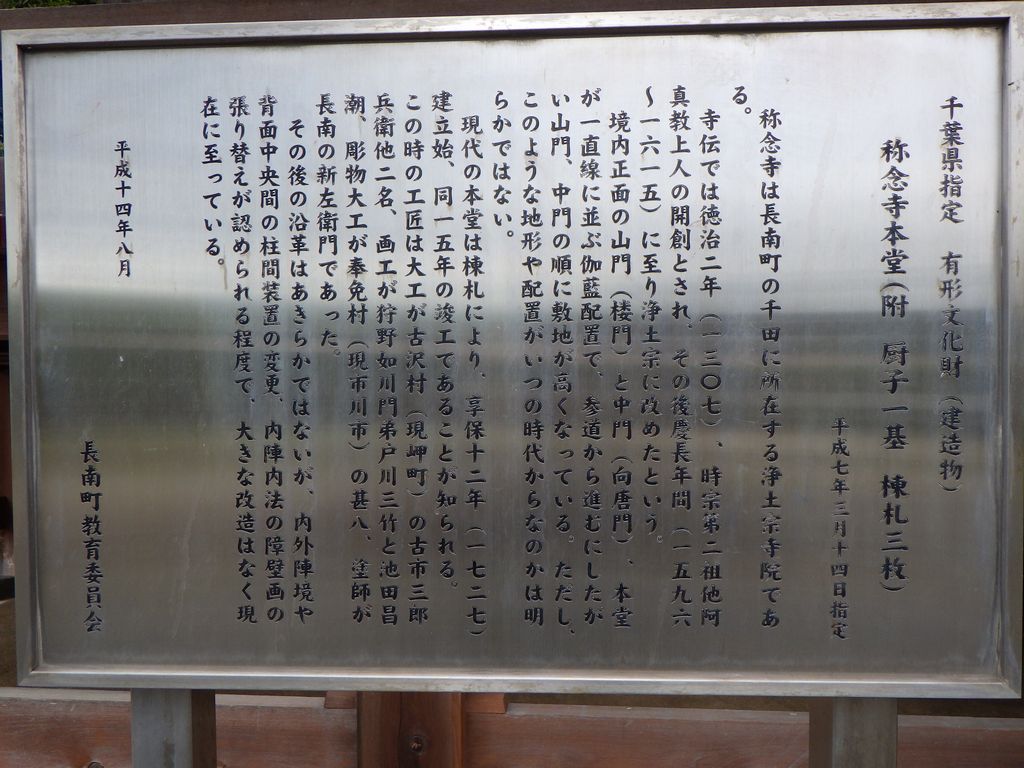 千葉県指定　有形文化財（建造物）
称念寺本堂（附　厨子一基　棟札三枚）
平成七年三月十四日指定
称念寺は長南町の千田に所在する浄土宗寺院であ
る。
寺伝では徳治二年（一三〇七）、時宗第二祖他阿
真教上人の開創とされ、その後慶長年間（一五九六
～一六一五）に至り浄土宗に改めたという。
境内正面の山門（楼門）と中門（向唐門）、本堂
が一直線に並ぶ伽藍配置で、参道から進むにしたが
い山門、中門の順に敷地が高くなっている。ただし、
このような地形や配置がいつの時代からなのかは明
らかではない。
現代の本堂は棟札により、享保十二年（一七二七）
建立始、同一五年の竣工であることが知られる。
この時の工匠は大工が古沢村（現岬町）の古市三郎
兵衛他二名、画工が狩野如川門弟戸川三竹と池田昌
潮、彫物大工が奉免村（現市川市）の甚八、塗師が
長南の新左衛門であった。
その後の沿革はあきらかではないが、内外陣境や
背面中央間の柱間装置の変更、内陣内法の障壁画の
張り替えが認められる程度で、大きな改造はなく現
在に至っている。
平成十四年八月
長南町教育委員会